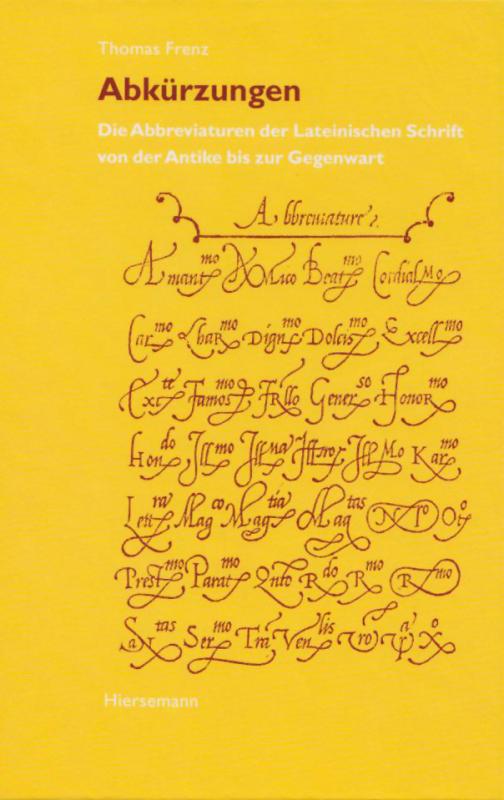 Thomas Frenz
Abkürzungen
Die Abbreviaturen der Lateinischen Schrift
von der Antike bis zur Gegenwart
Abbreuiature
Amant mo Amico Beat mo Cordial Mo
Car mo Char mo Dign mo Dolcis mo Excell mo
Exc te Famos mo Frllo Gener so Honor mo
Hon do Ill mo Ill ma Ill Mo Kar mo
Lett ra Mag co Mag tia Mag tas N ro
Prest mo Parat mo Qnto R do R mo R mo
San tas Ser mo Tra Ven lis
Hiersemann